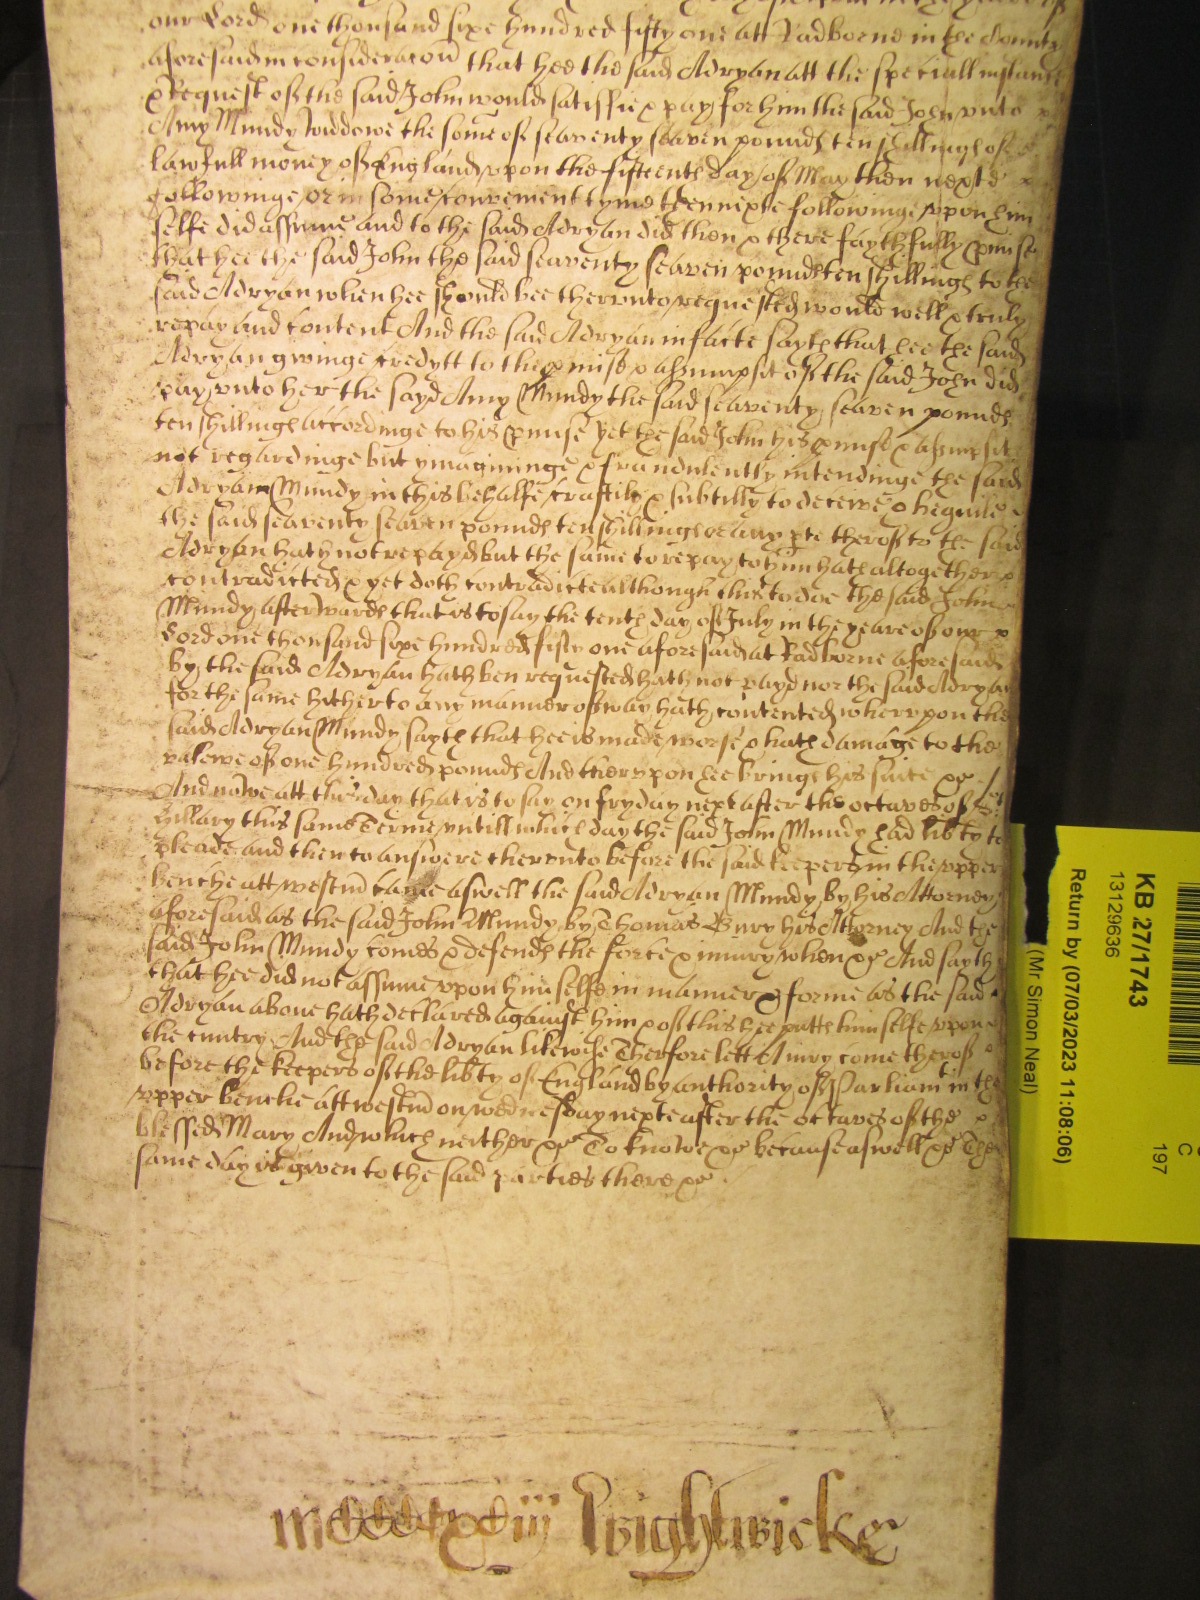 our Lord one thousand sixe hundred fifty one att Radborne in the County
aforesaid in consideracon that hee the said Adryan att the speciall instance
& request of the said John would satisfie & pay for him the said John unto
Amy Mundy widdowe the some of seaventy seaven pounds ten shillings of
lawfull money of England upon the fifteenth day of May then next
followinge or in some convenient tyme then nexte followinge upon him
selfe did assume and to the said Adryan did then & there faythfully pmise
that hee the said John the said seaventy seaven pounds ten shillings to the
said Adryan when hee should bee therunto requested would well & truly
repay and content And the said Adryan in facte sayth that hee the said
Adryan givinge credytt to the pmise & assumpsit of the said John did
pay unto her the sayd Amy Mundy the said seaventy seaven pounds
ten shillings accordinge to his pmise Yet the said John his pmise & assumpsit
not regardinge but ymagininge & fraudulently intendinge the said
Adryan Mundy in this behalfe craftily & subtilly to deceive & beguile
the said seaventy seaven pounds ten shillings or any pte therof to the said
Adryan hath not repayd but the same to repay to him hath altogether
contradicted & yet doth contradicte although this to doe the said John
Mundy afterwards that is to say the tenth day of July in the yeare of our
Lord one thousand sixe hundred fifty one aforesaid at Radborne aforesaid
by the said Adryan hath ben requested hath not payd nor the said Adryan
for the same hitherto any manner of way hath contented wherupon the
said Adryan Mundy sayth that hee is made worse & hath damage to the
valewe of one hundred pounds And therupon hee brings his suite &c
And nowe att this day that is to say on fryday next after the octaves of St
Hillary this same Terme untill which day the said John Mundy had libty to
pleade and then to answere therunto before the said keepers in the upper
benche att westm came aswell the said Adryan Mundy by his Attorney
aforesaid as the said John Mundy by Thomas Bury his Attorney And the
said John Mundy comes & defends the force & iniury when &c And sayth
that hee did not assume upon himselfe in manner & forme as the said
Adryan above hath declared against him & of this hee putts himselfe upon
the cuntry And the said Adryan likewise Therfore lett a iury come therof
before the keepers of the libty of England by authority of Parliamt in the
upper benche att westm on wednesday nexte after the octaves of the
blessed Mary And which neither &c To knowe &c because aswell &c The
same day is given to the said parties there &c
Wightwicke
KB 27/1743
13129636
C
197
Return by (07/03/2023 11:08:06)
(Mr Simon Neal)